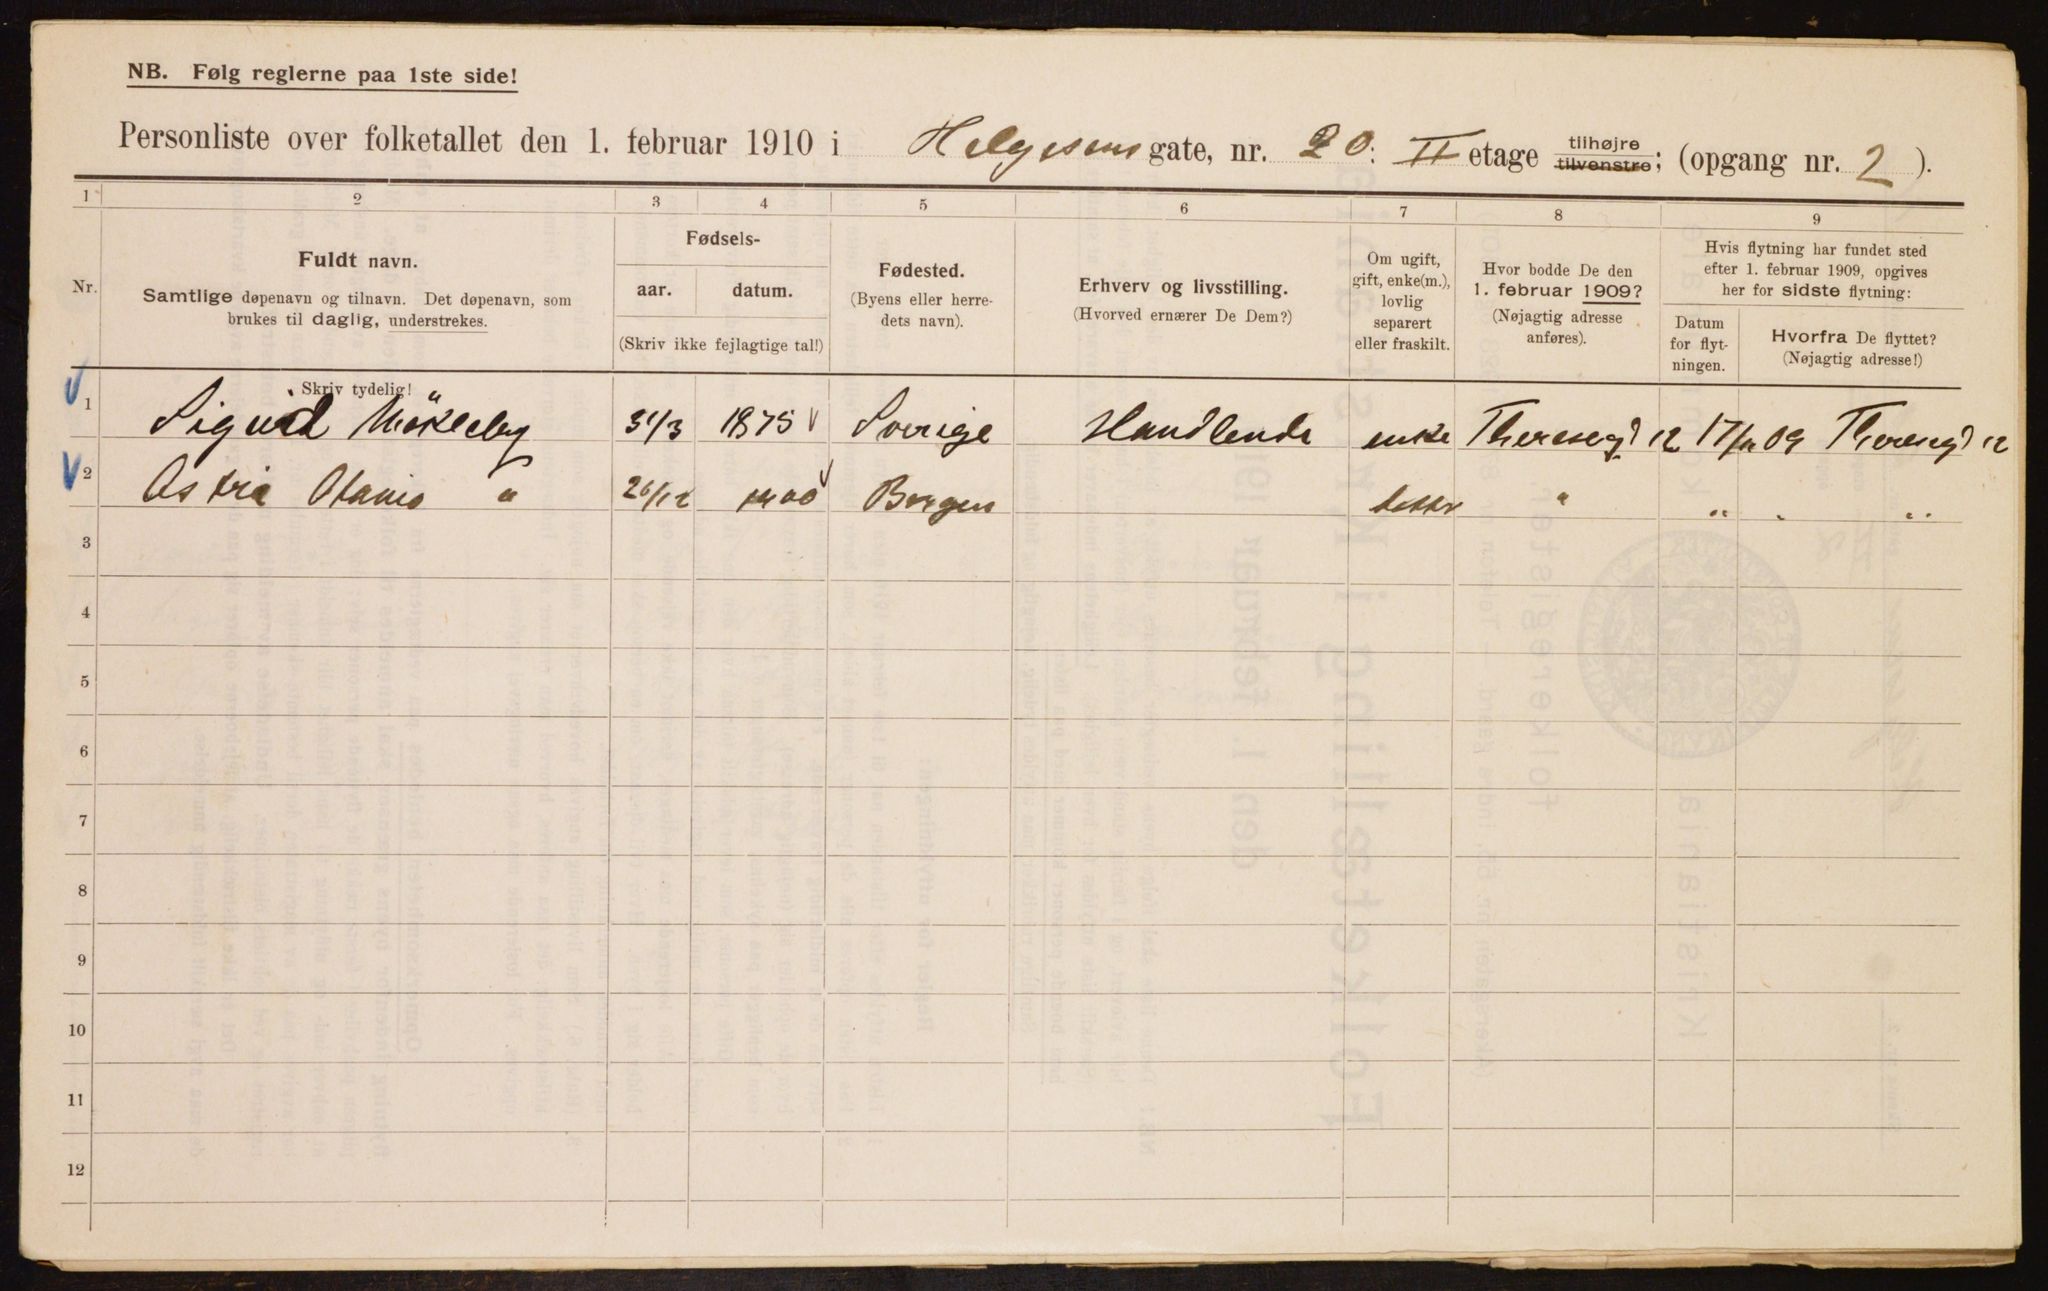 NB. Følg reglerne paa 1ste side!
Personliste over folketallet den 1. februar 1910 i Helgesens gate, nr. 20; II etage tilhøjre tilvenstre; (opgang nr. 2).
1 2 3 4 5 6 7 8 9
Nr.
Fuldt navn.
Samtlige døpenavn og tilnavn. Det døpenavn, som
brukes til daglig, understrekes.
Skriv tydelig!
Fødsels-
aar. datum.
(Skriv ikke fejlagtige tal!)
Fødested.
(Byens eller herre-
dets navn).
Erhverv og livsstilling.
(Hvorved ernærer De Dem?)
Om ugift,
gift, enke(m.),
lovlig
separert
eller fraskilt.
Hvor bodde De den
1. februar 1909?
(Nøjagtig adresse
anføres).
Hvis flytning har fundet sted
efter 1. februar 1909, opgives
her for sidste flytning:
Datum
for flyt-
ningen.
Hvorfra De flyttet?
(Nøjagtig adresse!)
1 Sigrid Mökleby 31/3 1875 Sverige Handlende enke Theresegd 12 17/11 09 Theresegd 12
2 Astrid " 26/12 1900 Bergen datter " " " "
3
4
5
6
7
8
9
10
11
12